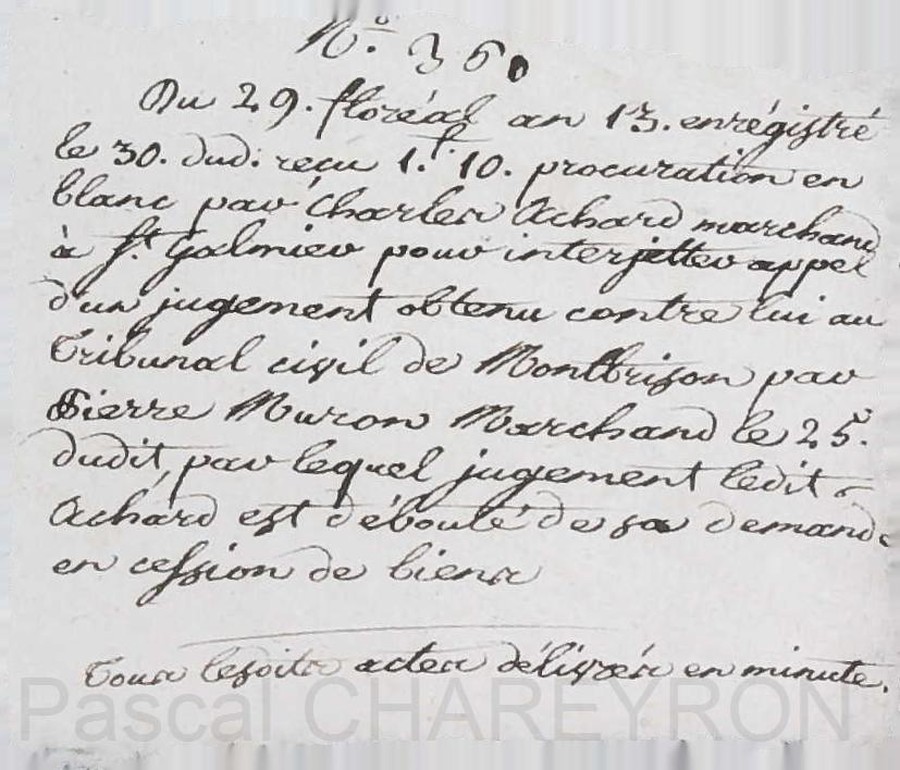 N.º 360
Du 29. floréal an 13. enrégistré
le 30. dud. reçu 1.f 10. procuration en
blanc par Charles Achard marchand
à St. Galmier pour interjetter appel
d'un jugement obtenu contre lui au
Tribunal civil de Montbrison par
Pierre Muron Marchand le 25.
dudit, par lequel jugement ledit
Achard est débouté de sa demande
en cession de biens
Tous lesdits actes délivrés en minute.
Pascal CHAREYRON